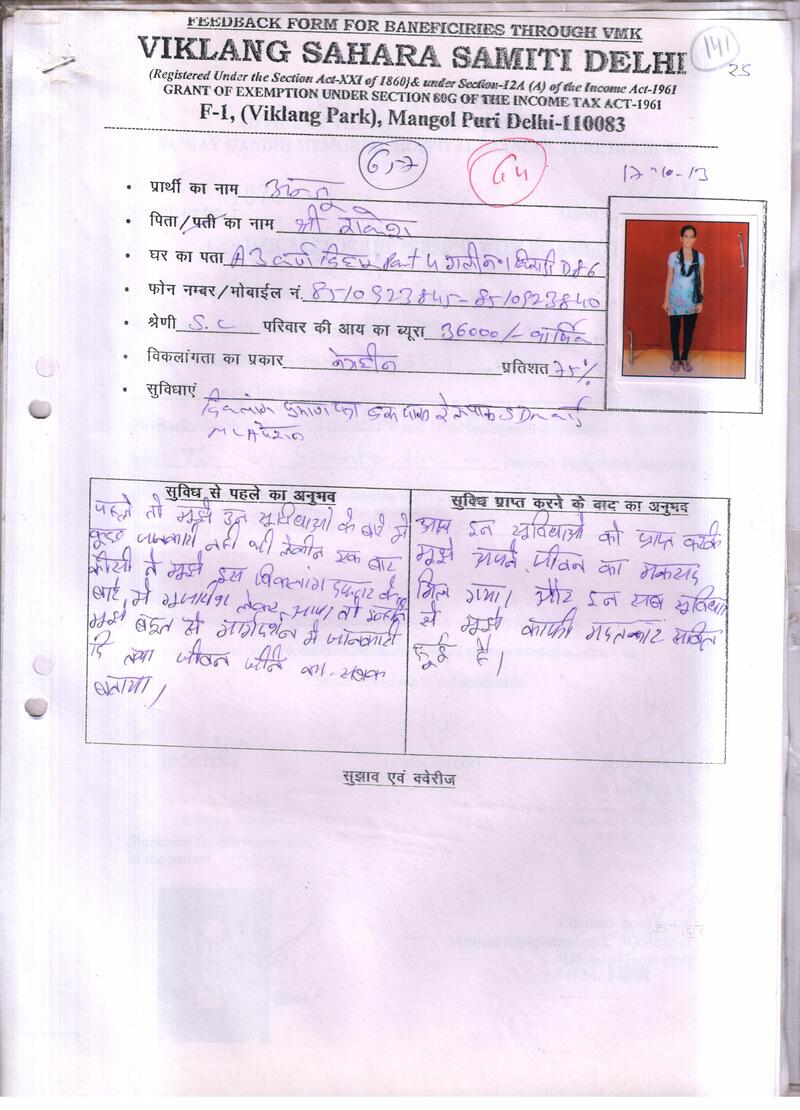 FEEDBACK FORM FOR BANEFICIRIES THROUGH VMK
VIKLANG SAHARA SAMITI DELHI
(Registered Under the Section Act-XXI of 1860}& under Section-12A (A) of the Income Act-1961
GRANT OF EXEMPTION UNDER SECTION 80G OF THE INCOME TAX ACT-1961
F-1, (Viklang Park), Mangol Puri Delhi-110083
141
25
G-7
G4
17-10-13
• प्रार्थी का नाम
• पिता/पती का नाम श्री राकेश
• घर का पता Part 4 D86
• फोन नम्बर/मोबाईल नं. 8510923845-8510923840
• श्रेणी S.C परिवार की आय का ब्यूरा 36000/- वार्षिक
• विकलांगता का प्रकार नेत्रहीन प्रतिशत 75%
• सुविधाएं
विकलांग प्रमाण पत्र बस पास रेल पास
MLA पेंशन
सुविध से पहले का अनुभव
पहले तो मुझे उन सुविधाओ के बारे में
कुछ जानकारी नही थी लेकीन एक बार
कीसी ने मुझे इस विकलांग
बारे में लेकर आया तो
मुझे बहुत से मार्गदर्शन में जानकारी
दि तथा जीवन जीने का सबक
बताया।
सुविध प्राप्त करने के बाद का अनुभव
आज इन सुविधाओ को प्राप्त करके
मुझे अपने जीवन का मकसद
मिल गया। और इन सब सुविधा
से मुझे काफी मदतकार साबित
हुई है।
सुझाव एवं क्वेरीज